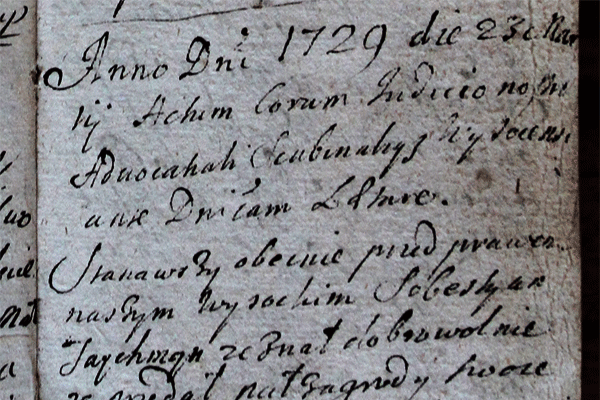 Anno Dni 1729 die 23 Mar
tij Actum Coram Judicio nostro
Advocatiali Scabinaliqs Wysocensi
ante Dnicam Lætare.
Stanąwszy obecnie przed prawem
naszym Wysockim Sobestyan
zeznał dobrowolnie
przedał pułzagrody swoie